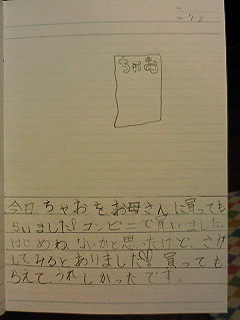 7.2
ちゃお
今日ちゃおをお母さんに買っても
らいました!コンビニで買いました
はじめわないかと思ったけど、さが
してみるとありました!!買っても
らえて、うれしかったです。